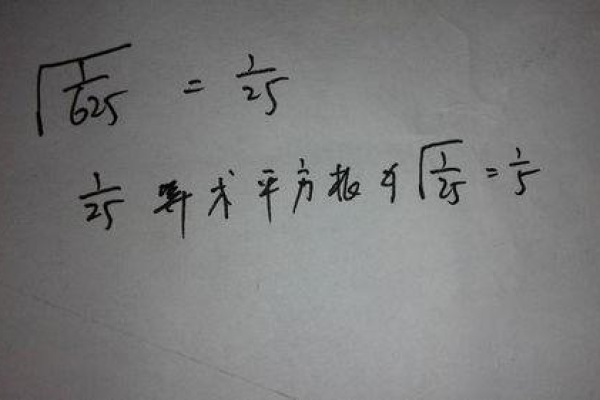 √(1/625) = 1/25
1/25 算术平方根为 √(1/25) = 1/5